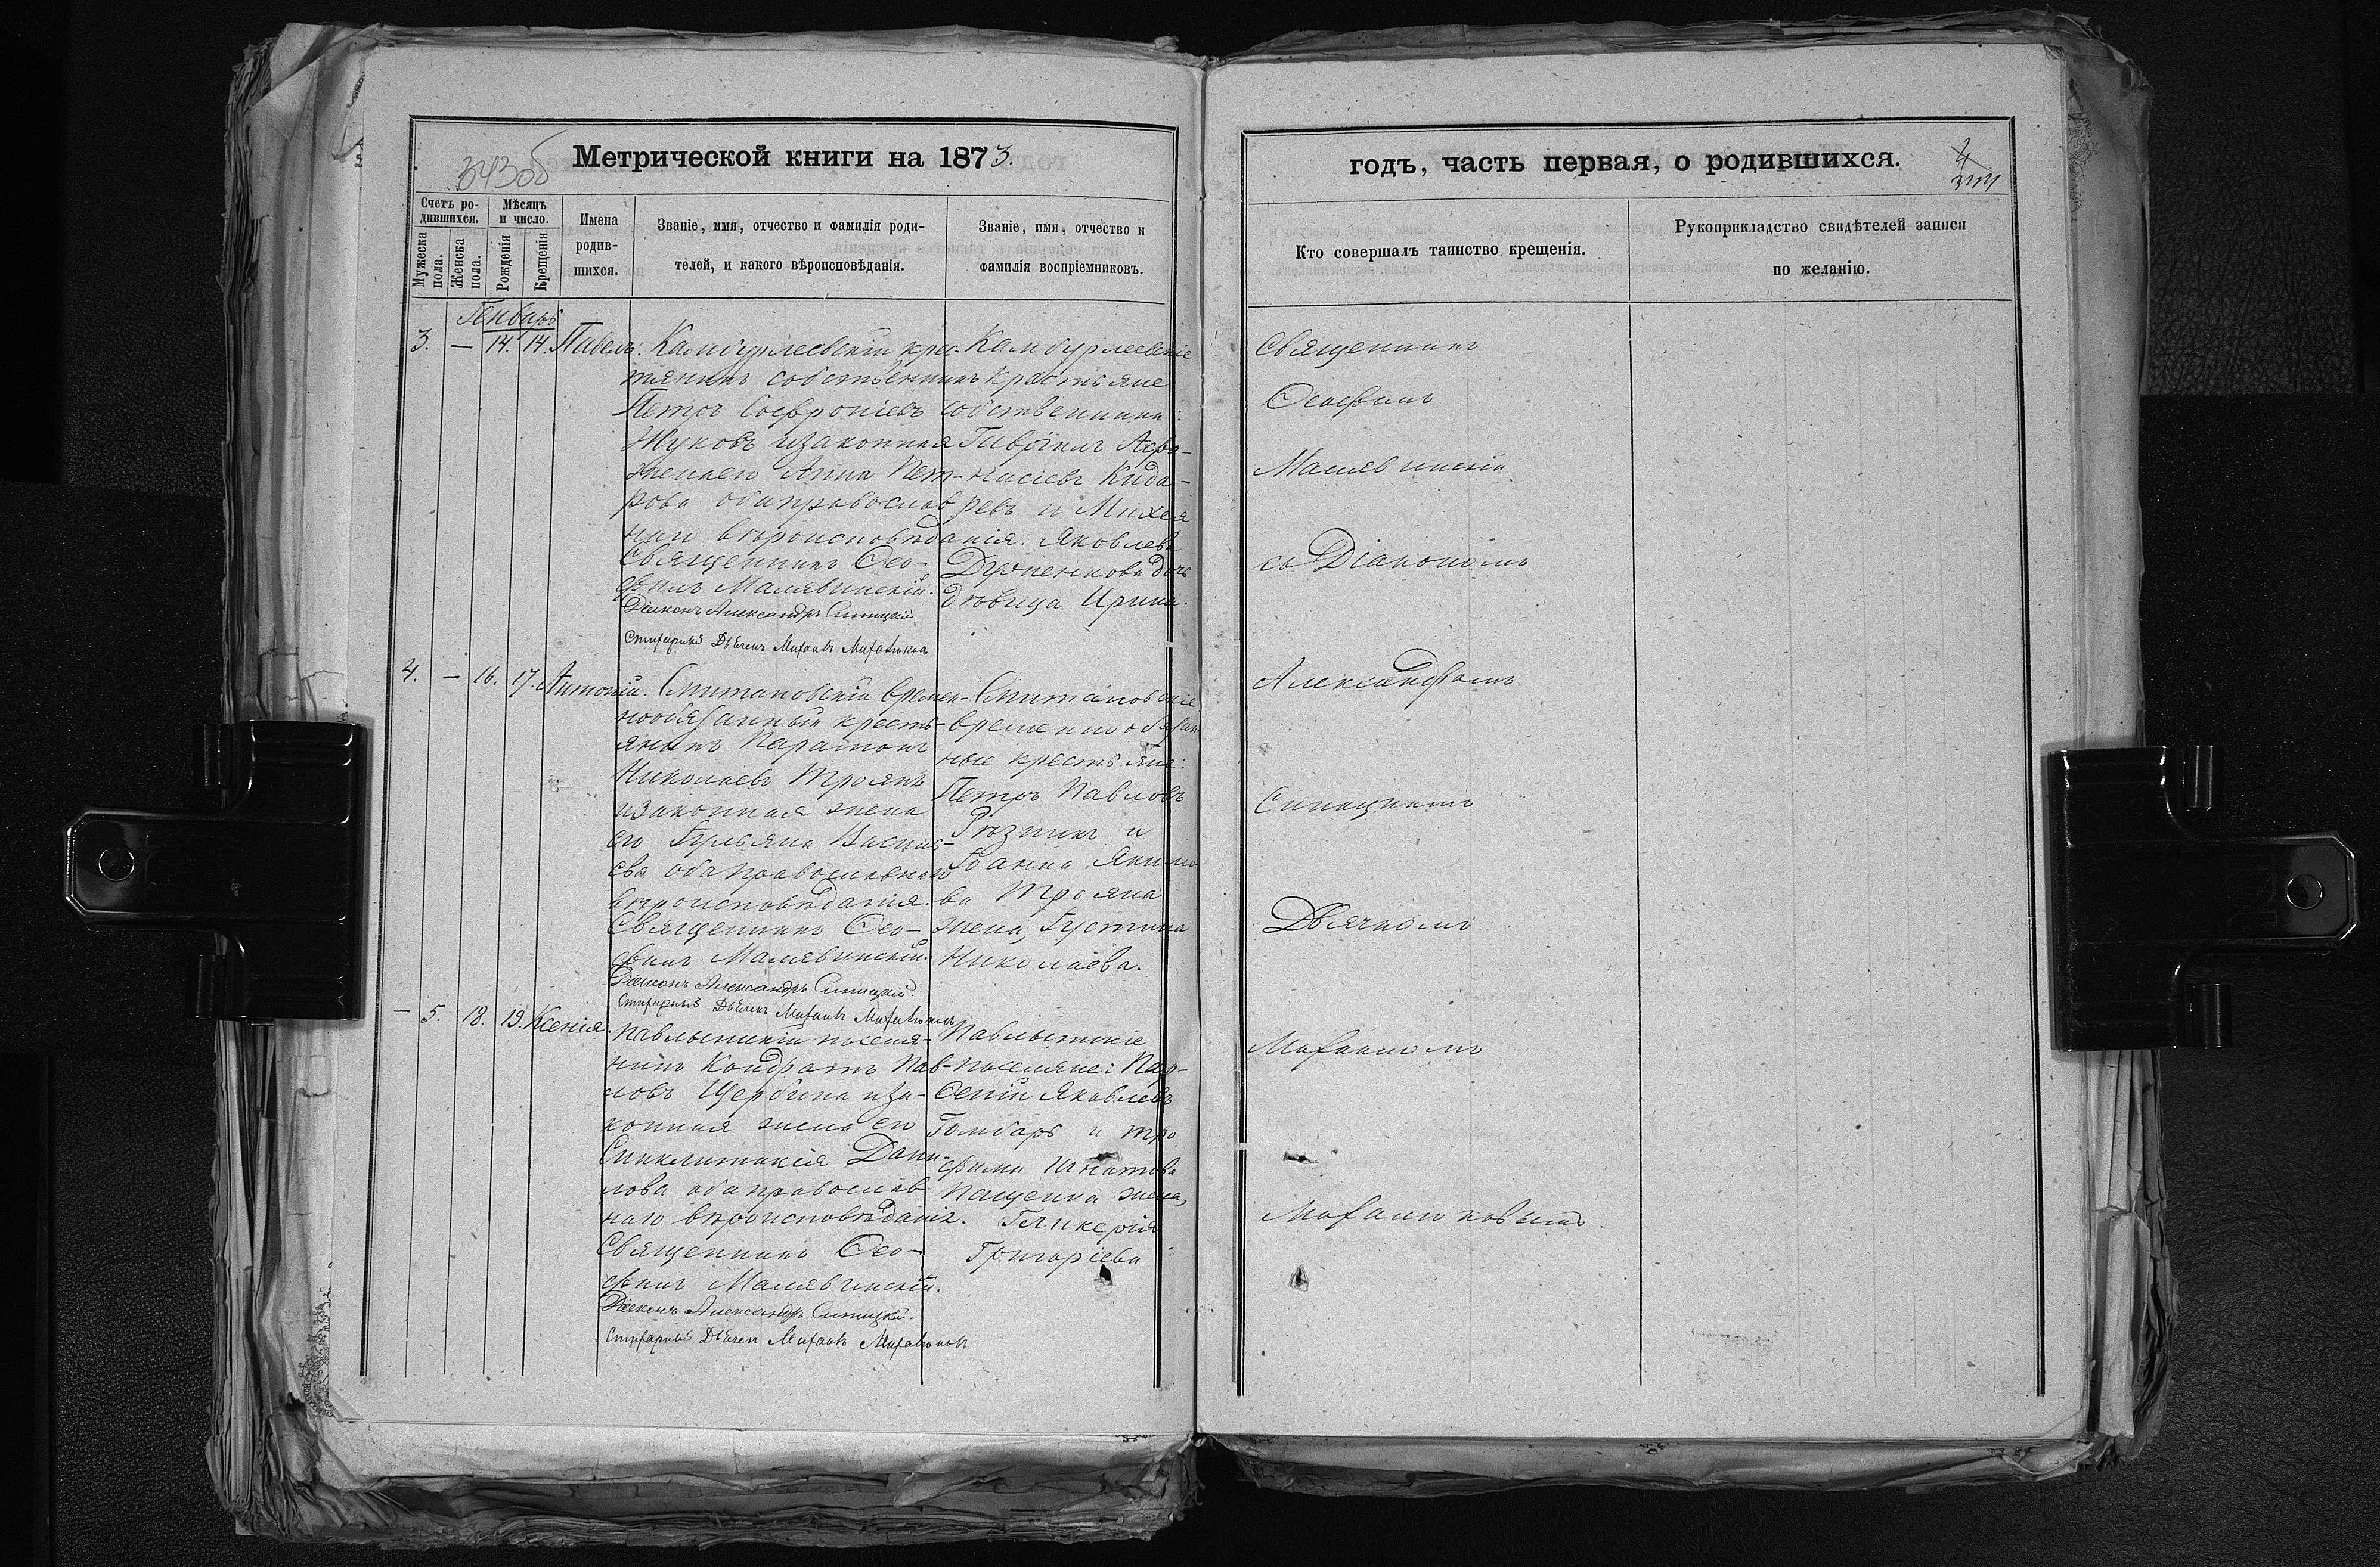 343об
Метрической книги на 1873.
Счетъ ро-
дившихся.
Мужеска
пола.
Женска
пола.
Мѣсяцъ
и число.
Рожденія
Крещенія
Имена
родив-
шихся.
Званіе, имя, отчество и фамилія роди-
телей, и какого вѣроисповѣданія.
Званіе, имя, отчество и
фамилія воспріемниковъ.
Генварь
3. — 14. 14. Павелъ.
Камбурлеевскій крес-
тянинъ собственникъ
Петръ Софроніевъ
Жуковъ изаконная
женаею Анна Пет-
рова обаправослав
наи вѣроисповѣданія.
Священникъ Ѳео-
филъ Малявинскій.
Діаконъ Александръ Синицкій
Стихарный Дьячекъ
Камбурлеевскіе
крестьяне
собственники:
Гавріилъ Аѳа-
насіевъ Кида-
ревъ и Михея
Яковлева
дочь
дѣвица Ирина.
4. — 16. 17. Антоній.
времен-
нообязанный кресть-
янинъ Парамонъ
Николаевъ Троянъ
изаконная жена
его Іульяна Васильe-
ева обаправославнаго
вѣроисповѣданія.
Священникъ Ѳео-
филъ Малявинскій.
Діаконъ Александръ Синицкій.
Стихарный Дьячекъ
временнообязан
ные крестьяне:
Петръ Павловъ
Рѣзникъ и
Іоанна Якимо
ва Трояна
жена, Іустина
Николаева.
— 5. 18. 19. Ксенія.
поселя-
нинъ Кондратъ Пав-
ловъ Щербина иза-
конная жена его
Синклитикія Дани-
лова обаправослав
наго вѣроисповѣданія.
Священникъ Ѳео-
филъ Малявинскій.
Діаконъ Александръ Синицкій.
Стихарный Дьячекъ
поселяне: Пар-
ѳеній Яковлевъ
и Тро
фима Игнатова
Пащенка жена,
Гликерія
Григоріева
годъ, часть первая, о родившихся.
Кто совершалъ таинство крещенія.
Рукоприкладство свидѣтелей записи
по желанію.
Священникъ
Ѳеофилъ
Малявинскій
съ Діакономъ
Александромъ
Синицкимъ
Дьячкомъ